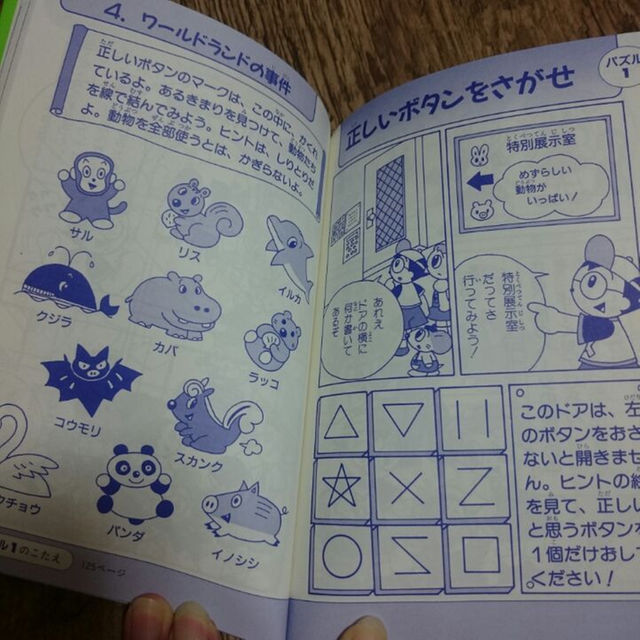 4. ワールドランドの事件
正しいボタンのマークは、この中に、かくれ
ているよ。あるきまりを見つけて、動物たち
を線で結んでみよう。ヒントは、しりとりだ
よ。動物を全部使うとは、かぎらないよ。
サル
リス
イルカ
クジラ
カバ
ラッコ
コウモリ
スカンク
クチョウ
パンダ
イノシシ
ル1のこたえ
125ページ
パズル
1
正しいボタンをさがせ
特別展示室
とくべつてんじしつ
めずらしい
動物が
いっぱい!
特別展示室
だってさ
行ってみよう!
あれえ
ドアの横に
何か書いて
あるぞ
このドアは、左
のボタンをおさ
ないと開きませ
ん。ヒントの絵
を見て、正しい
と思うボタンを
1個だけおして
ください!